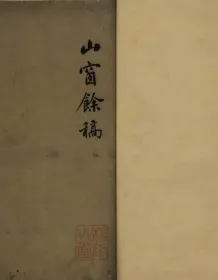 山窗餘稿